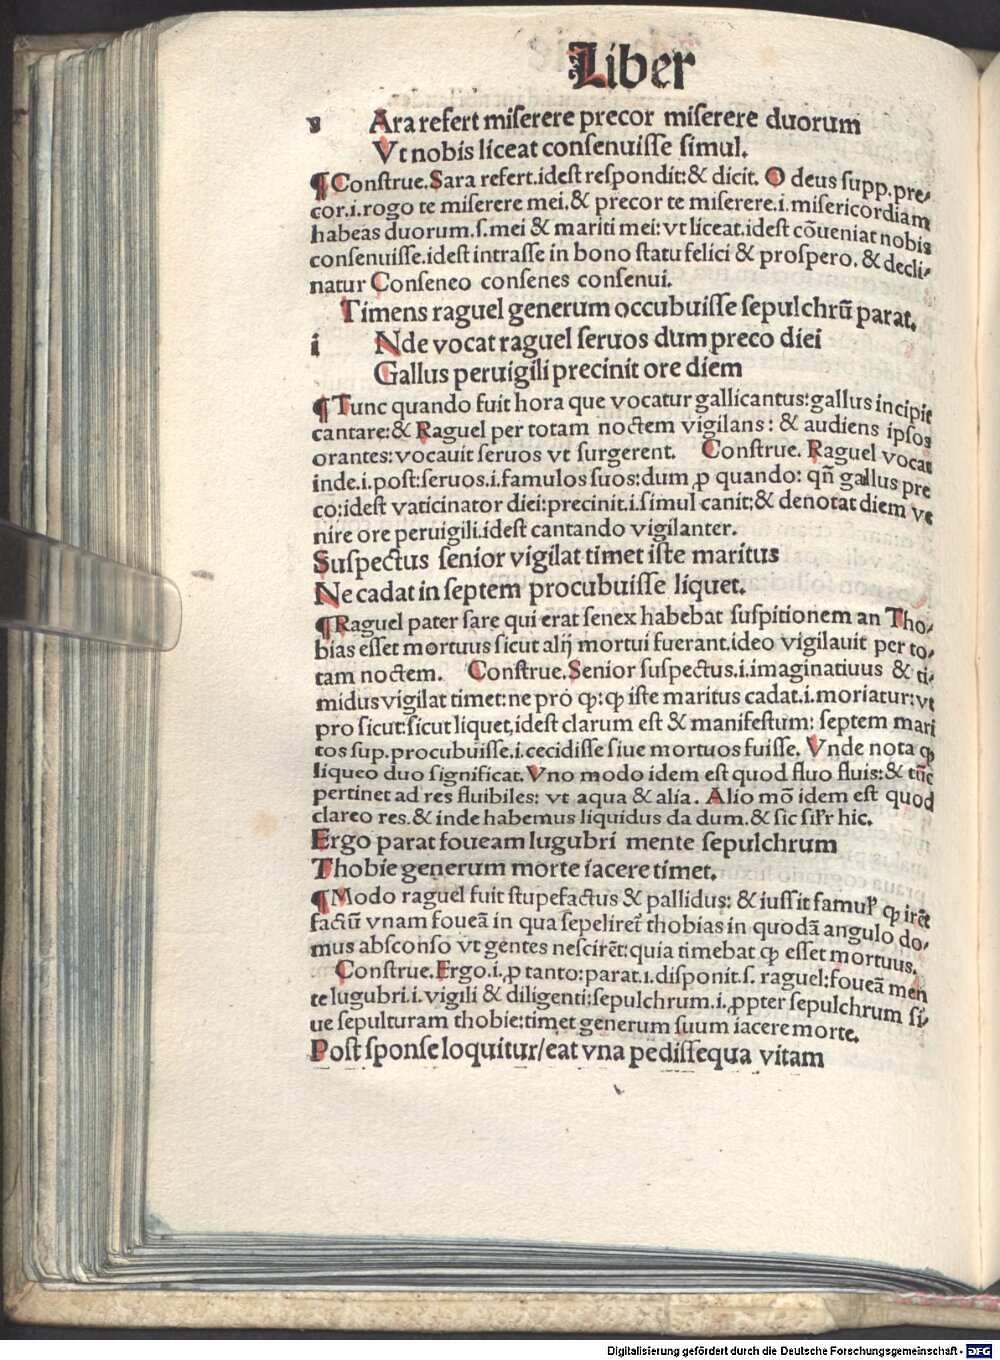 Liber
s Ara refert miserere precor miserere duorum
Vt nobis liceat consenuisse simul.
¶ Construe. Sara refert.idest respondit:& dicit. O deus supp.pre⸗
cor.i.rogo te miserere mei.& precor te miserere.i.misericordiam
habeas duorum.s.mei & mariti mei: vt liceat.idest cōueniat nobis
consenuisse.idest intrasse in bono statu felici & prospero. & decli⸗
natur Conseneo consenes consenui.
Timens raguel generum occubuisse sepulchrū parat.
i Nde vocat raguel seruos dum preco diei
Gallus peruigili precinit ore diem
¶ Tunc quando fuit hora que vocatur gallicantus:gallus incipit
cantare:& Raguel per totam noctem vigilans: & audiens ipsos
orantes: vocauit seruos vt surgerent. Construe. Raguel vocat
inde.i.post:seruos.i.famulos suos:dum ꝓ quando: qñ gallus pre
co:idest vaticinator diei:precinit.i.simul canit:& denotat diem ve
nire ore peruigili.idest cantando vigilanter.
Suspectus senior vigilat timet iste maritus
Ne cadat in septem procubuisse liquet.
¶ Raguel pater sare qui erat senex habebat suspitionem an Tho⸗
bias esset mortuus sicut alij mortui fuerant.ideo vigilauit per to⸗
tam noctem. Construe. Senior suspectus.i.imaginatiuus & ti⸗
midus vigilat timet:ne pro ꝙ: ꝙ iste maritus cadat.i.moriatur:vt
pro sicut:sicut liquet,idest clarum est & manifestum: septem mari
tos sup.procubuisse.i.cecidisse siue mortuos fuisse. Vnde nota ꝙ
liqueo duo significat. Vno modo idem est quod fluo fluis:& tūc
pertinet ad res fluibiles: vt aqua & alia. Alio mō idem est quod
clareo res.& inde habemus liquidus da dum.& sic silr hic.
Ergo parat foueam lugubri mente sepulchrum
Thobie generum morte iacere timet.
¶ Modo raguel fuit stupefactus & pallidus: & iussit famul' ꝙ irēt
factū vnam foueā in qua sepeliret' thobias in quodā angulo do⸗
mus absconso vt gentes nescirēt:quia timebat ꝙ esset mortuus.
Construe. Ergo.i.ꝓ tanto:parat.i.disponit.s. raguel:foueā men
te lugubri.i.vigili & diligenti:sepulchrum.i.ꝓpter sepulchrum si⸗
ue sepulturam thobie:timet generum suum iacere morte.
Post sponse loquitur/eat vna pedissequa vitam
Digitalisierung gefördert durch die Deutsche Forschungsgemeinschaft - DFG